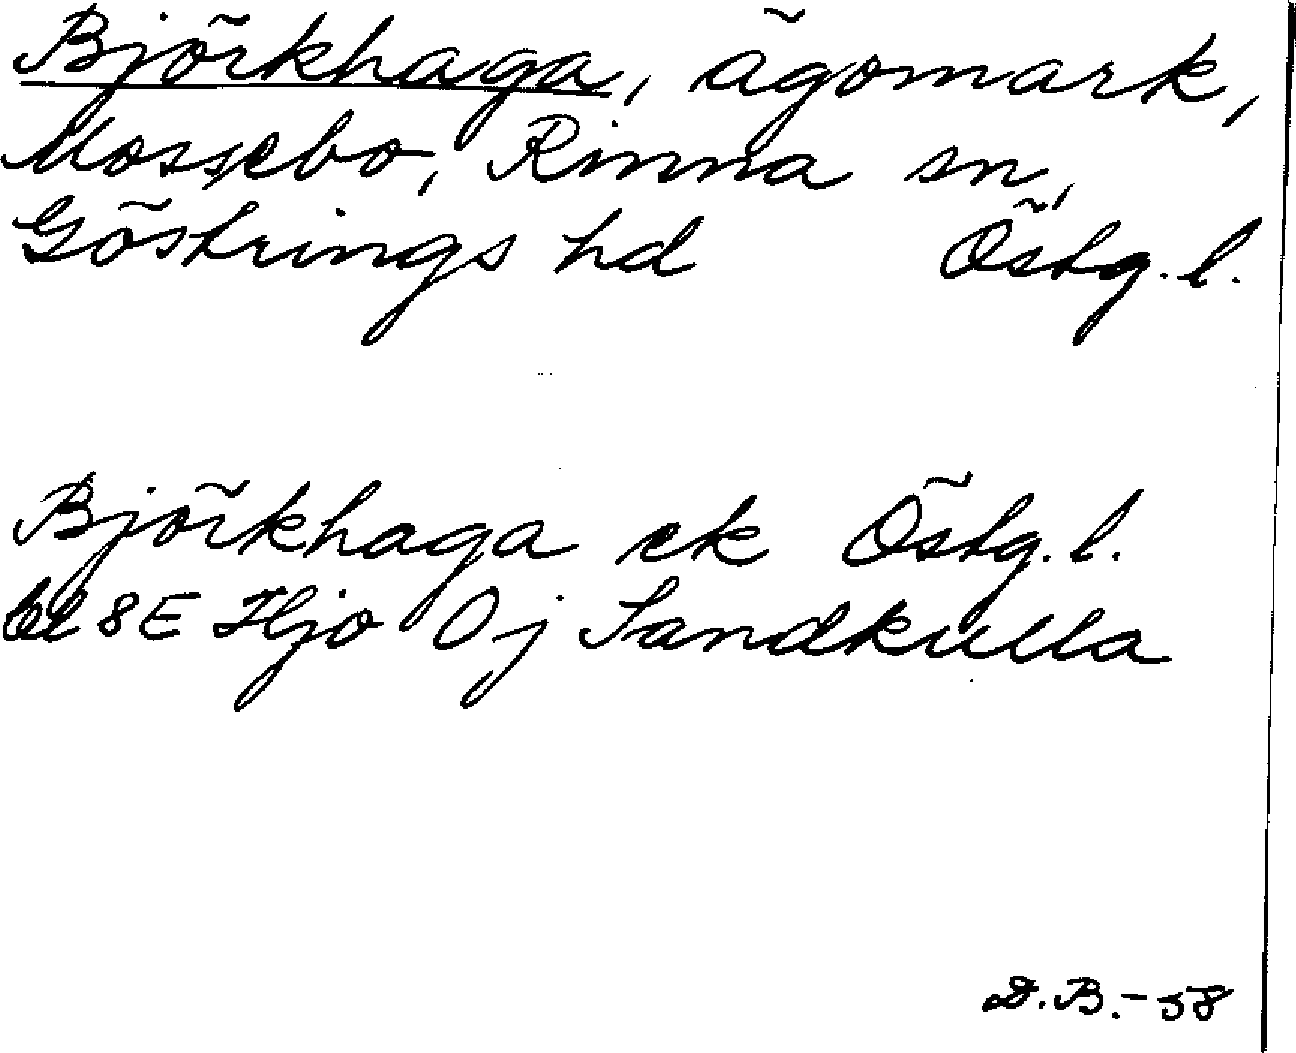 Björkhaga, ägomark,
Mossebo, Rinna sn,
Göstrings hd Östg. l.
Björkhaga ek Östg. l.
bl 8E Hjo 0j Sandkulla
D.B.-58